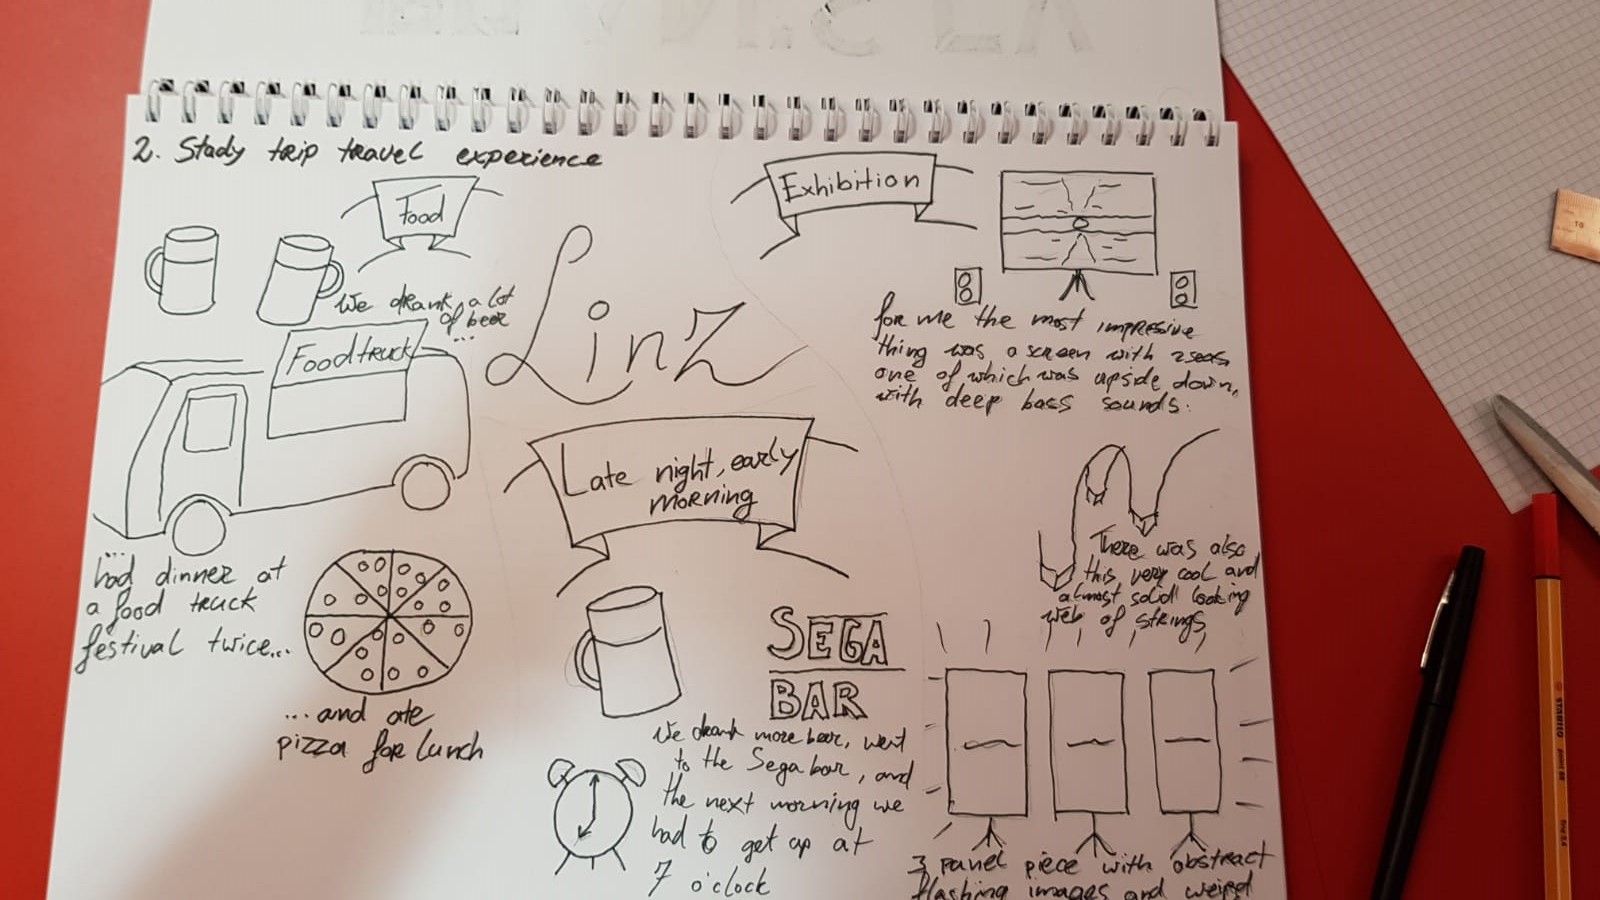 2. Study trip travel experience
Food
We drank a lot
of beer
...
Foodtruck
...
had dinner at
a food truck
festival twice...
...and ate
pizza for lunch
Linz
Late night, early
morning
SEGA
BAR
We drank more beer, went
to the Sega bar, and
the next morning we
had to get up at
7 o'clock
Exhibition
for me the most impressive
thing was a screen with 2 seas
one of which was upside down,
with deep bass sounds.
There was also
this very cool and
almost solid looking
web of strings
3 panel piece with abstract
flashing images and weird